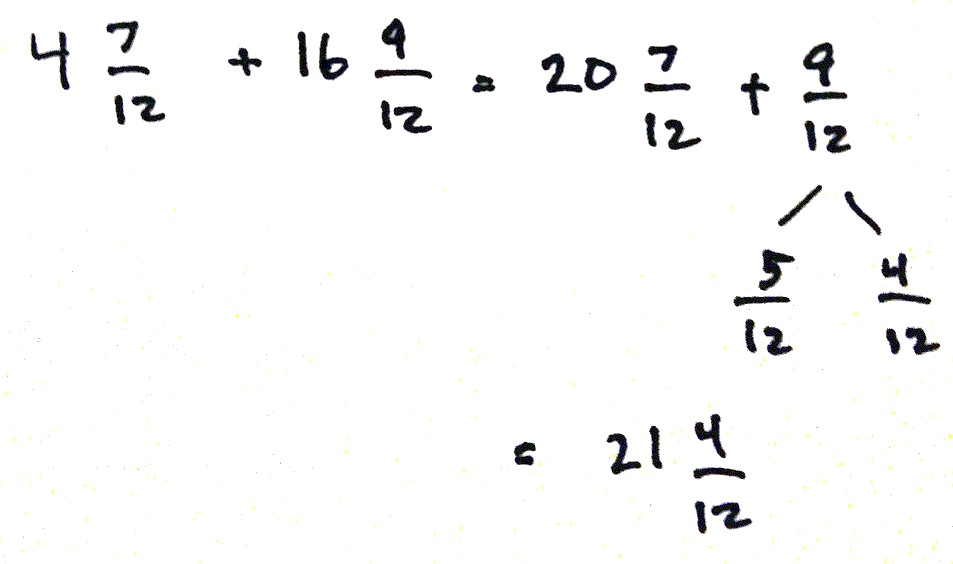 4 7/12 + 16 9/12 = 20 7/12 + 9/12
5/12 4/12
= 21 4/12